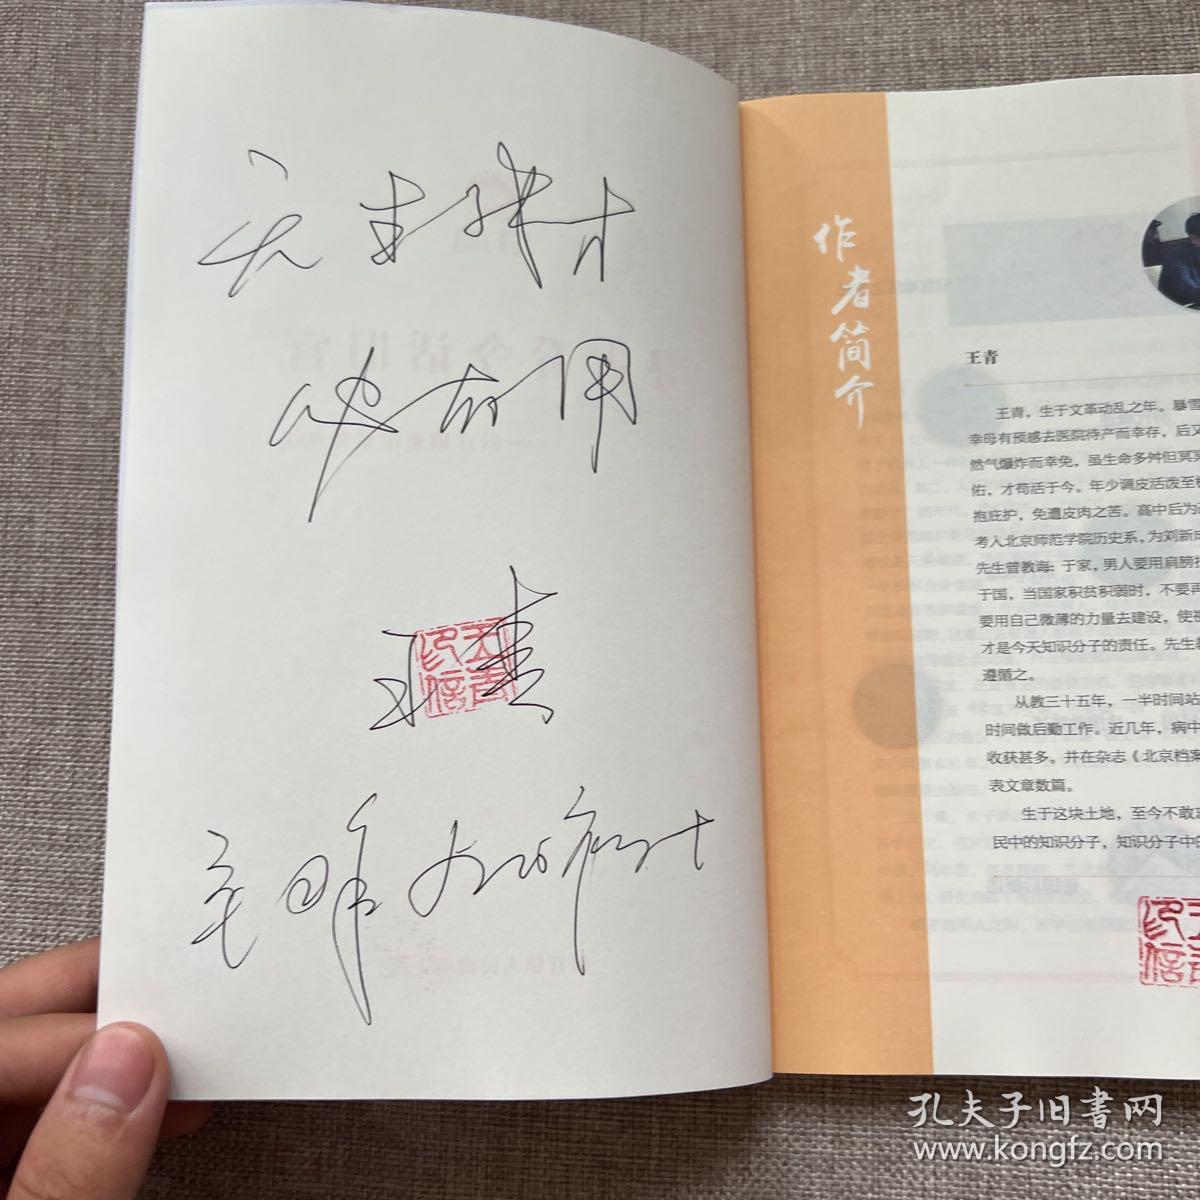 天生我才
必有用
王青
王青印信
作者简介
王青
王青，生于文革动乱之年。暴雪
幸母有预感去医院待产而幸存，后又
然气爆炸而幸免，虽生命多舛但冥冥
佑，才苟活于今。年少调皮活泼至
抱庇护，免遭皮肉之苦。高中后为
考入北京师范学院历史系，为刘新成
先生曾教诲：于家，男人要用肩膀
于国，当国家积贫积弱时，不要再
要用自己微薄的力量去建设，使
才是今天知识分子的责任。先生
遵循之。
从教三十五年，一半时间站
时间做后勤工作。近几年，病中
收获甚多。并在杂志《北京档案
表文章数篇。
生于这块土地，至今不敢
民中的知识分子，知识分子中
孔夫子旧书网
www.kongfz.com